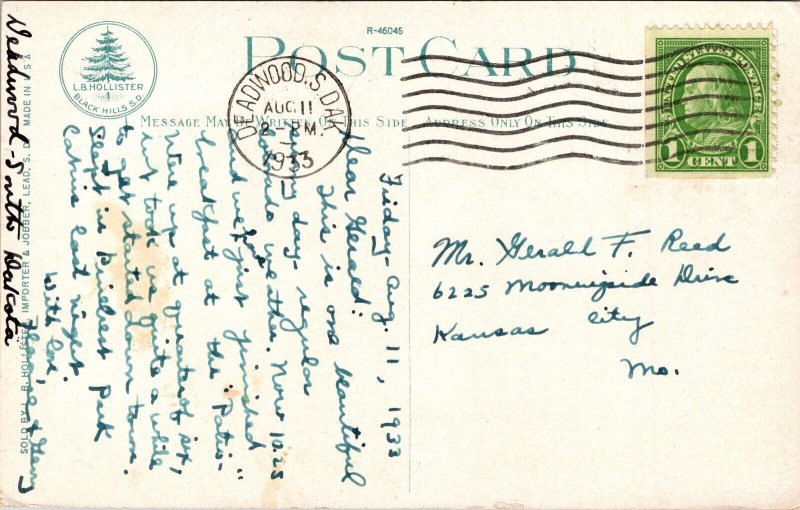 R-46045
POST CARD
MESSAGE MAY BE WRITTEN ON THIS SIDE
ADDRESS ONLY ON THIS SIDE
L.B. HOLLISTER
BLACK HILLS S.D.
DEADWOOD, S.DAK.
AUG 11
2 PM
1933
UNITED STATES POSTAGE
1 CENT 1
Friday - Aug. 11, 1933
Dear Gerald:
This is one beautiful
day - regular
weather. Now 10:25
and we just finished
breakfast at the "Patio" -
Were up at quarter of six,
it took us quite a while
to get started down town.
Slept in Pinecrest Park
Cabins last night
With love,
& Gery
Mr. Gerald F. Reed
6225 Morningside Drive
Kansas City
Mo.
Deadwood - South Dakota
SOLD BY L. B. HOLLISTER, IMPORTER & JOBBER, LEAD, S. D. MADE IN U S A